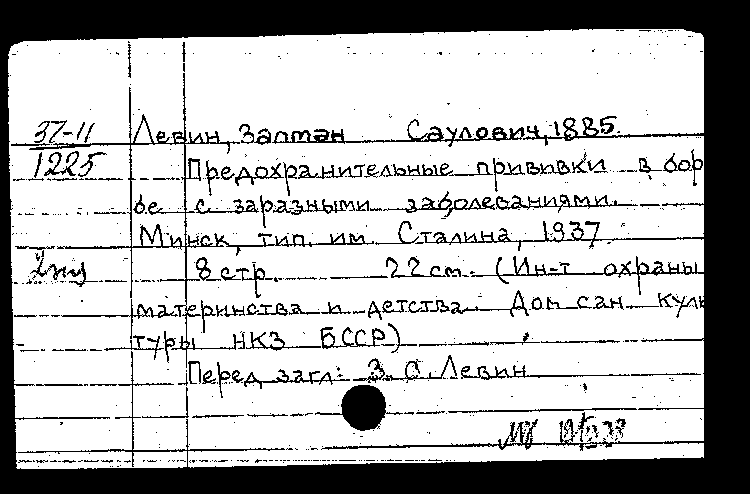 37-11
1225
Левин, Залман Саулович, 1885.
Предохранительные прививки в бор
бе с заразными заболеваниями.
Минск, тип. им. Сталина, 1937.
2 экз
8 стр. 22 см. (Ин-т охраны
материнства и детства. Дом сан. куль
туры НКЗ БССР)
Перед загл: З. С. Левин